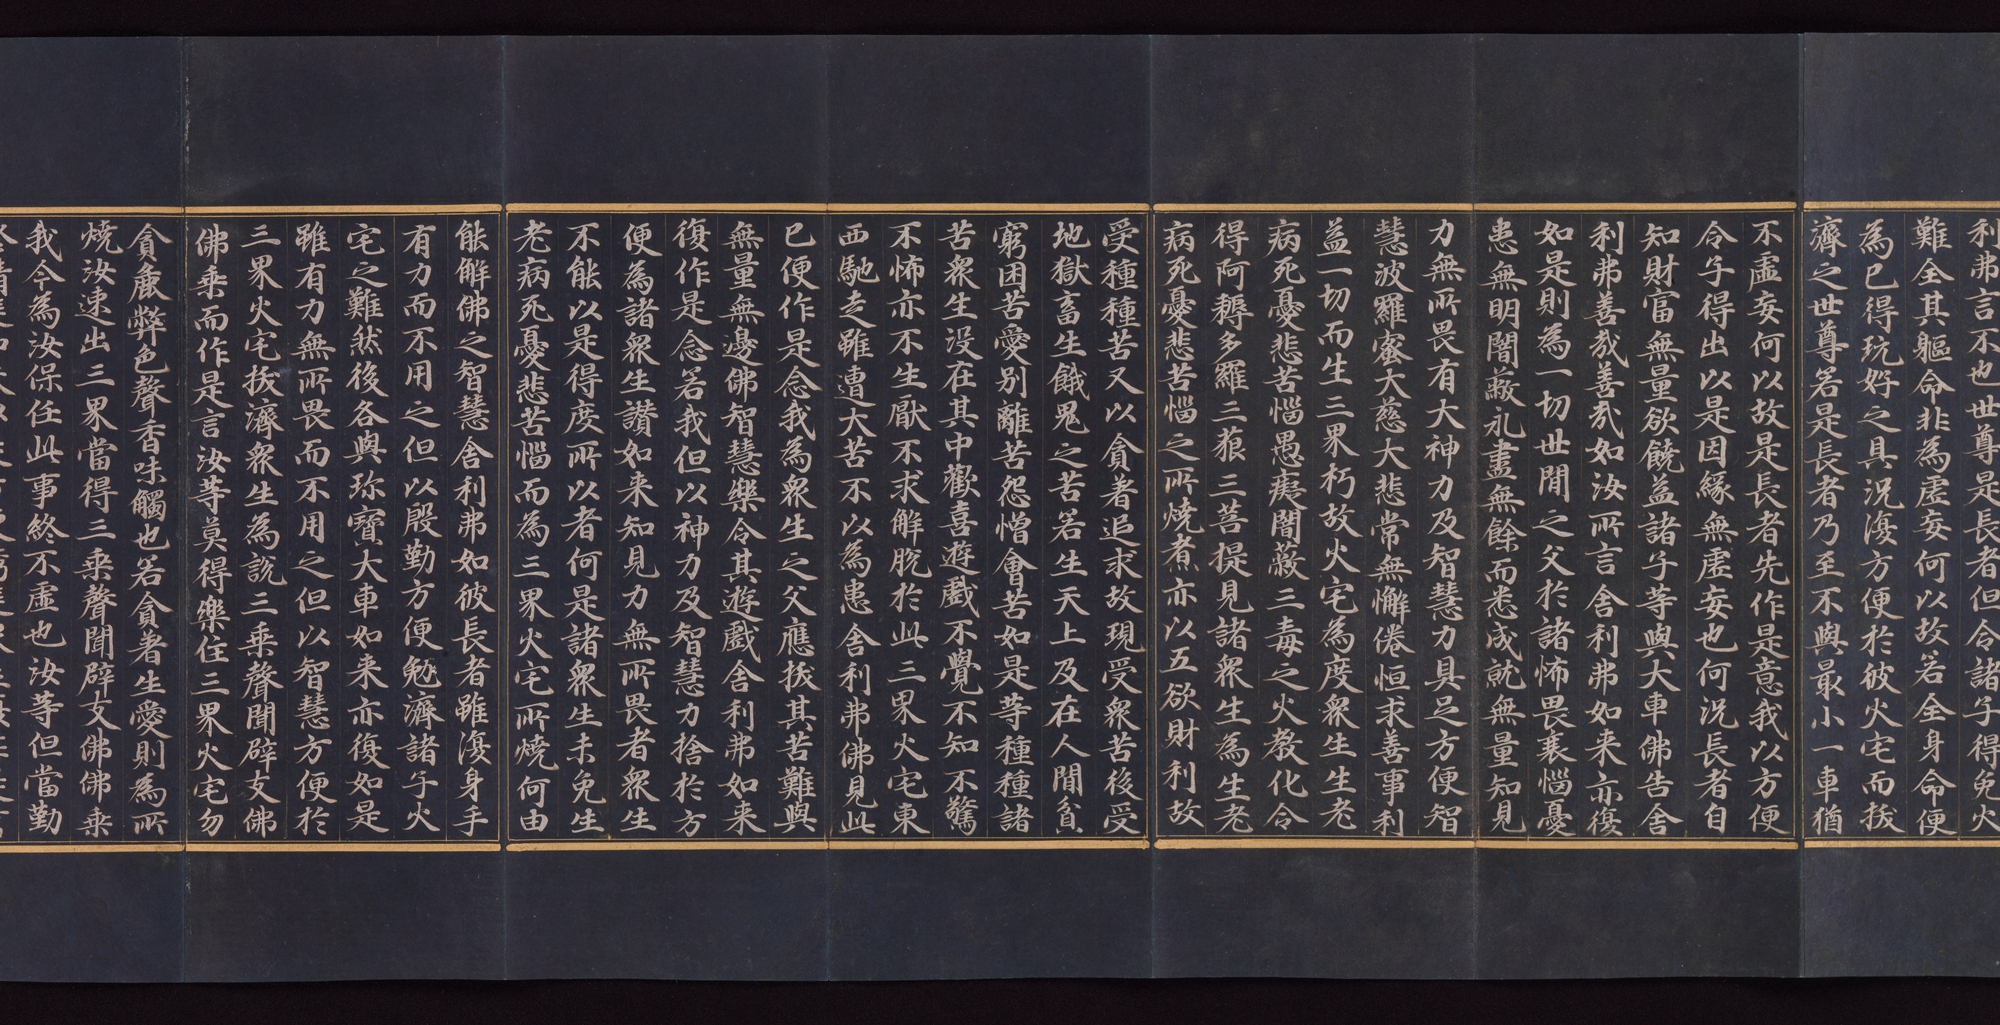 利弗言不也世尊是長者但令諸子得免火
難全其軀命非為虛妄何以故若全身命便
為已得玩好之具況復方便於彼火宅而拔
濟之世尊若是長者乃至不與最小一車猶
不虛妄何以故是長者先作是意我以方便
令子得出以是因緣無虛妄也何況長者自
知財富無量欲饒益諸子等與大車佛告舍
利弗善哉善哉如汝所言舍利弗如来亦復
如是則為一切世間之父於諸怖畏衰惱憂
患無明闇蔽永盡無餘而悉成就無量知見
力無所畏有大神力及智慧力具足方便智
慧波羅蜜大慈大悲常無懈倦恒求善事利
益一切而生三界朽故火宅為度衆生生老
病死憂悲苦惱愚癡闇蔽三毒之火教化令
得阿耨多羅三藐三菩提見諸衆生為生老
病死憂悲苦惱之所燒煮亦以五欲財利故
受種種苦又以貪著追求故現受衆苦後受
地獄畜生餓鬼之苦若生天上及在人間貧
窮困苦愛別離苦怨憎會苦如是等種種諸
苦衆生沒在其中歡喜遊戲不覺不知不驚
不怖亦不生厭不求解脫於此三界火宅東
西馳走雖遭大苦不以為患舍利弗佛見此
已便作是念我為衆生之父應拔其苦難與
無量無邊佛智慧樂令其遊戲舍利弗如来
復作是念若我但以神力及智慧力捨於方
便為諸衆生讚如来知見力無所畏者衆生
不能以是得度所以者何是諸衆生未免生
老病死憂悲苦惱而為三界火宅所燒何由
能解佛之智慧舍利弗如彼長者雖復身手
有力而不用之但以殷勤方便勉濟諸子火
宅之難然後各與珍寶大車如来亦復如是
雖有力無所畏而不用之但以智慧方便於
三界火宅拔濟衆生為說三乘聲聞辟支佛
佛乘而作是言汝等莫得樂住三界火宅勿
貪麁弊色聲香味觸也若貪著生愛則為所
燒汝速出三界當得三乘聲聞辟支佛佛乘
我今為汝保任此事終不虛也汝等但當勤